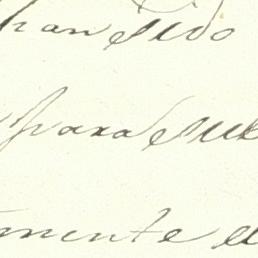 han sido
para su
mente e